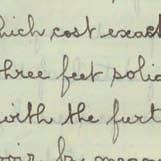 which cost exact
three feet solid
with the furt